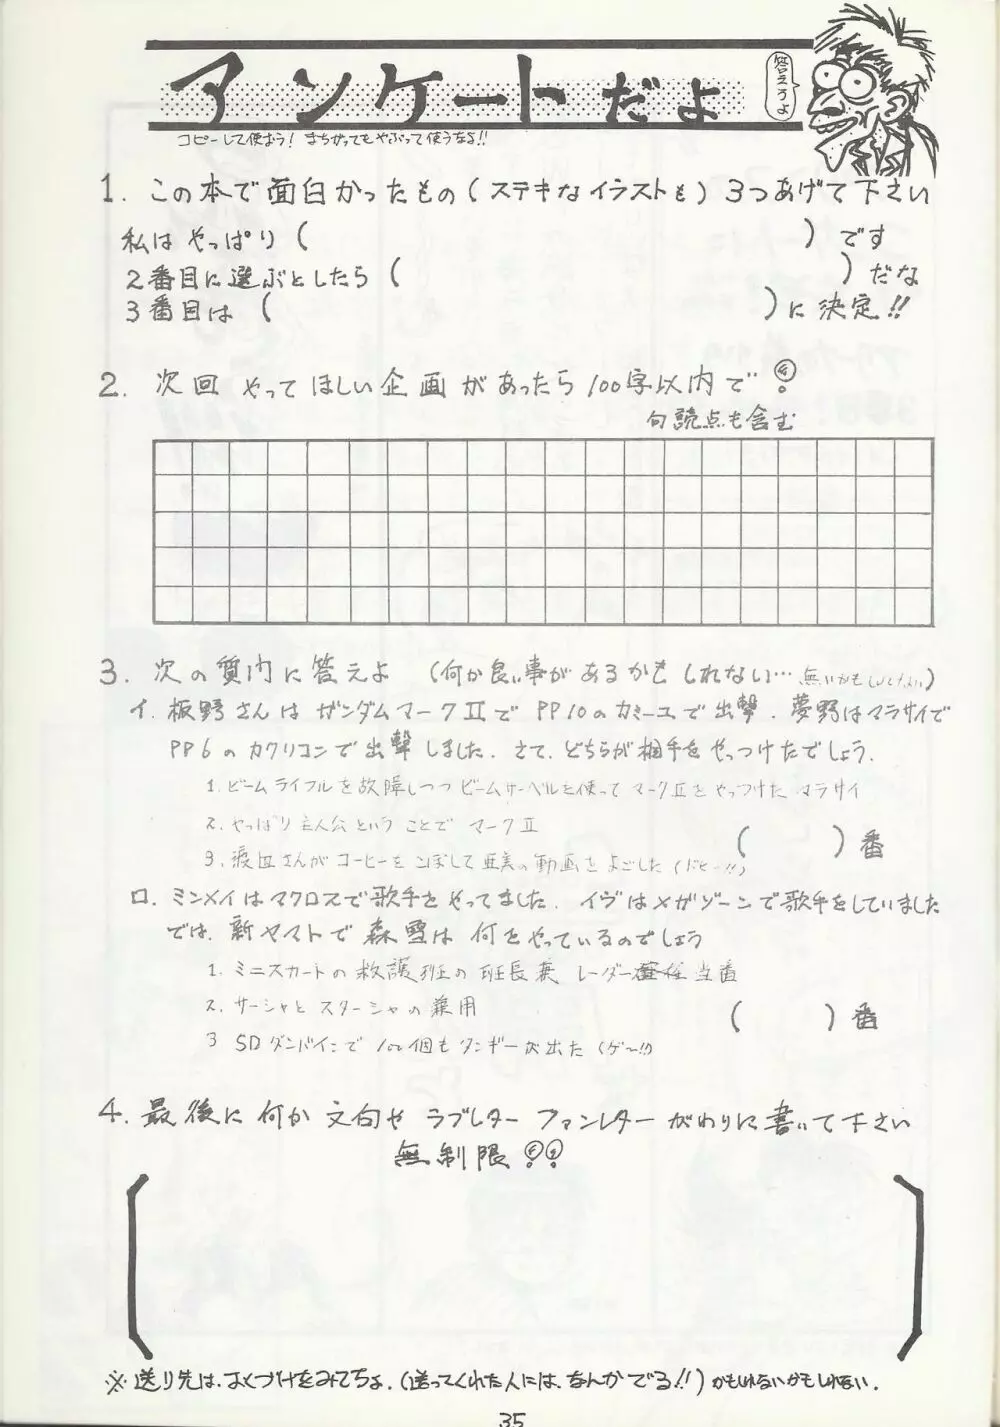 アンケートだよ
答えろよ
コピーして使おう！ まちがってもやぶって使うなよ!!
1. この本で面白かったもの(ステキなイラストも)3つあげて下さい
私はやっぱり( )です
2番目に選ぶとしたら( )だな
3番目は( )に決定!!
2. 次回やってほしい企画があったら100字以内で
句読点も含む
3. 次の質問に答えよ (何か良い事があるかもしれない…無いかもしれない)
イ. 板野さんはガンダムマークⅡでPP10のカミーユで出撃. 夢野はマラサイで
PP6のカクリコンで出撃しました. さて、どちらが相手をやっつけたでしょう.
1. ビームライフルを故障しつつビームサーベルを使ってマークⅡをやっつけたマラサイ
2. やっぱり主人公ということでマークⅡ
3. 渡辺さんがコーヒーをこぼして亜美の動画をよごした
( )番
ロ. ミンメイはマクロスで歌手をやってました. イヴはメガゾーンで歌手をしていました
では、新ヤマトで森雪は何をやっているのでしょう
1. ミニスカートの救護班の班長兼レーダー担当番
2. サーシャとスターシャの兼用
( )番
3 SDダンバインで100個もダンギーが出た(ゲ〜!!)
4. 最後に何か文句やラブレターファンレターがわりに書いて下さい
無制限
※送り先は、おくづけをみてちょ.(送ってくれた人には、なんかでる!!)かもしれないかもしれない.
35